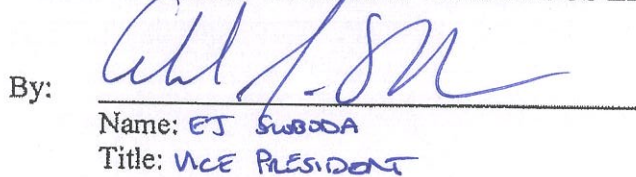 By:
Name: EJ SWOBODA
Title: VICE PRESIDENT